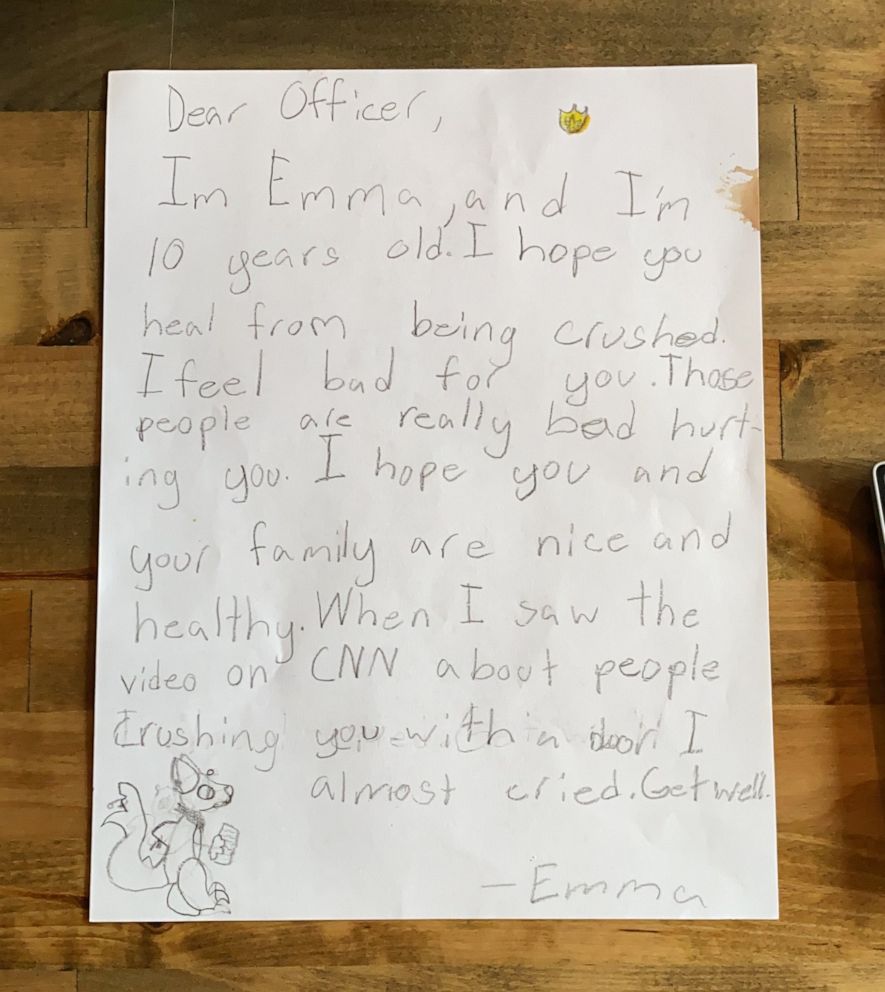 Dear Officer,
Im Emma, and I'm
10 years old. I hope you
heal from being crushed.
I feel bad for you. Those
people are really bad hurt-
ing you. I hope you and
your family are nice and
healthy. When I saw the
video on CNN about people
crushing you with a door I
almost cried. Get well.
— Emma